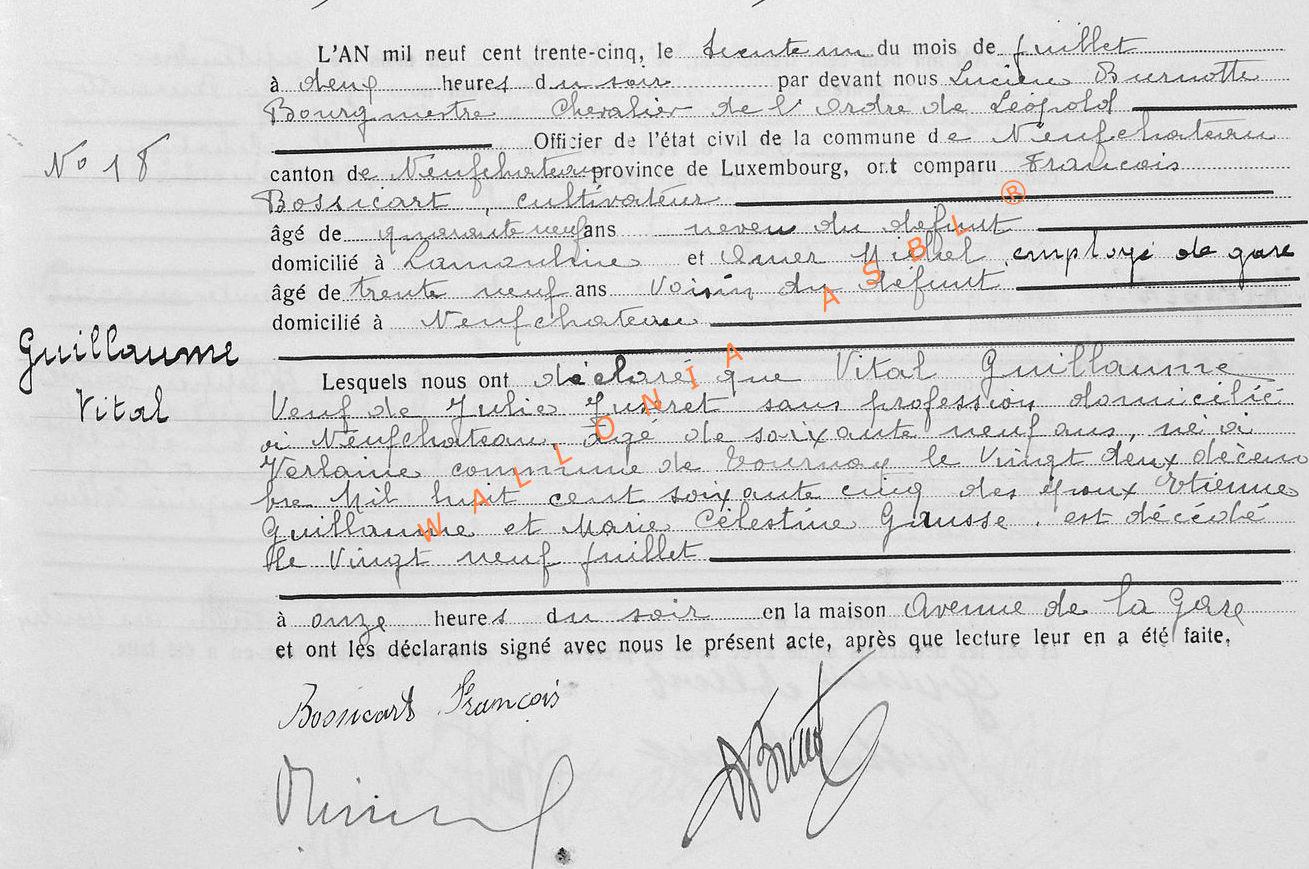 L'AN mil neuf cent trente-cinq, le trente un du mois de juillet
à deux heures du soir par devant nous Lucien Burnotte
Bourgmestre Chevalier de l'Ordre de Léopold
Officier de l'état civil de la commune de Neufchateau
No 18
canton de Neufchateau province de Luxembourg, ont comparu François
Bossicart, cultivateur
âgé de quarante neuf ans neveu du défunt
domicilié à Lamouline et Omer Michel employé de gare
âgé de trente neuf ans Voisin du défunt
domicilié à Neufchateau
Guillaume
Vital
Lesquels nous ont déclaré que Vital Guillaume
Veuf de Julie Juseret sans profession domicilié
à Neufchateau, âgé de soixante neuf ans, né à
Verlaine commune de Tournay le Vingt deux décem
bre Mil huit cent soixante cinq des époux Etienne
Guillaume et Marie Célestine Gausse. est décédé
le Vingt neuf juillet
à onze heures du soir en la maison Avenue de la Gare
et ont les déclarants signé avec nous le présent acte, après que lecture leur en a été faite,
Bossicart François
WALLONIA ASBL ®